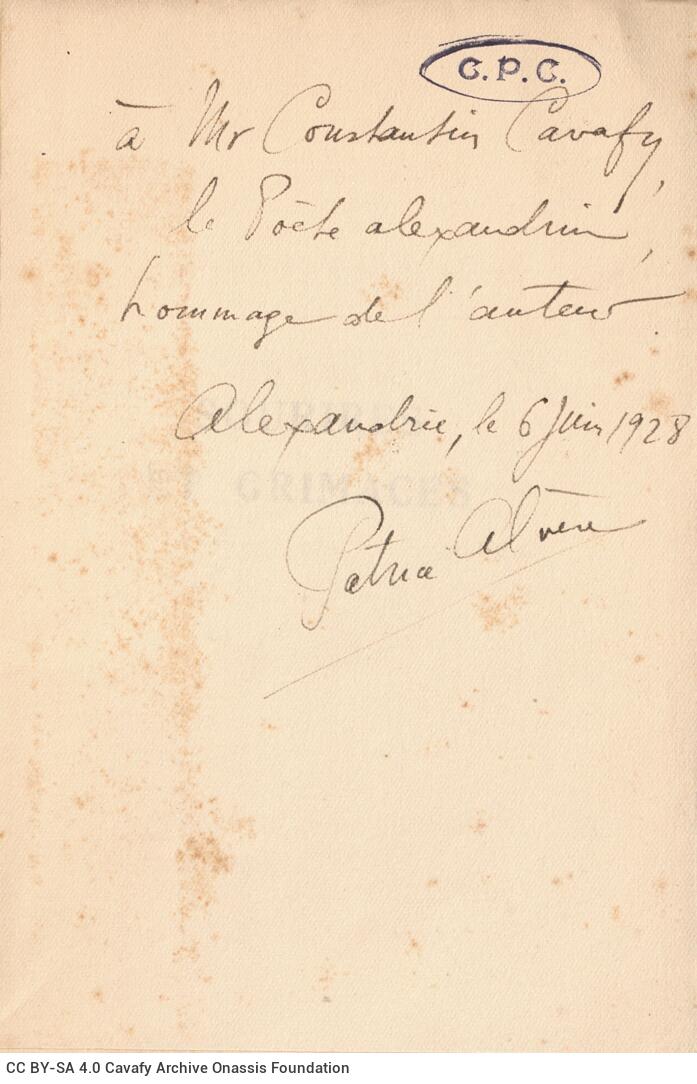 C.P.C.
à Mr Constantin Cavafy,
le Poète alexandrin,
hommage de l'auteur.
Alexandrie, le 6 Juin 1928
ET GRIMACES
Patrice Alvère
CC BY-SA 4.0 Cavafy Archive Onassis Foundation